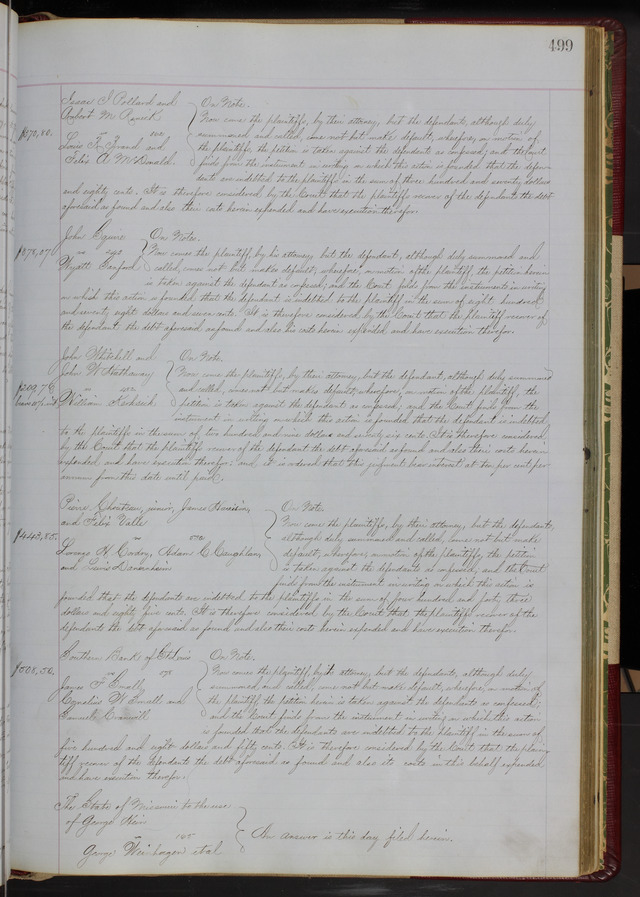 499
Isaac S Pollard and
Robert M
vs
Louis F and
Felix A McDonald
$370,80.
On Note.
Now come the plaintiffs, by their attorney, but the defendants, although duly
summoned and called, come not but make default, wherefore, on motion of
the plaintiffs, the petition is taken against the defendants as confessed; and the Court
finds from the instrument in writing on which this action is founded that the defen-
dants are indebted to the plaintiffs in the sum of three hundred and seventy dollars
and eighty cents. It is therefore considered by the Court that the plaintiffs recover of the defendants the debt
aforesaid as found and also their costs herein expended and have execution therefor.
John Squire
vs
Wyatt Sanford
$878,07
On Notes.
Now comes the plaintiff, by his attorney, but the defendant, although duly summoned and
called, comes not but makes default; wherefore, on motion of the plaintiff, the petition herein
is taken against the defendant as confessed; and the Court finds from the instruments in writing
on which this action is founded that the defendant is indebted to the plaintiff in the sum of eight hundred
and seventy eight dollars and seven cents. It is therefore considered by the Court that the plaintiff recover of
the defendant the debt aforesaid as found and also his costs herein expended and have execution therefor.
John Whitehill and
John W Hathaway
vs
William
$209,76
On Note.
Now come the plaintiffs, by their attorney, but the defendant, although duly summoned
and called, comes not but makes default; wherefore, on motion of the plaintiffs, the
petition is taken against the defendant as confessed; and the Court finds from the
instrument in writing on which this action is founded that the defendant is indebted
to the plaintiffs in the sum of two hundred and nine dollars and seventy six cents. It is therefore considered
by the Court that the plaintiffs recover of the defendant the debt aforesaid as found and also their costs herein
expended, and have execution therefor; and it is ordered that this judgment bear interest at ten per cent per
annum from this date until paid.
Pierre Chouteau, junior, James Harrison,
and Felix Valle
vs
Lorenzo H Cordry, Adam C Caughlan,
and Lewis
$443,85.
On Note
Now come the plaintiffs, by their attorney, but the defendants,
although duly summoned and called, come not but make
default; wherefore, on motion of the plaintiffs, the petition
is taken against the defendants as confessed; and the Court
finds from the instrument in writing on which this action is
founded that the defendants are indebted to the plaintiffs in the sum of four hundred and forty three
dollars and eighty five cents. It is therefore considered by the Court that the plaintiffs recover of the
defendants the debt aforesaid as found and also their costs herein expended and have execution therefor.
Southern Bank of St Louis
vs
James F Small,
Cornelius W Small and
Samuel
$508,50.
On Note.
Now comes the plaintiff, by its attorney, but the defendants, although duly
summoned and called, come not but make default, wherefore, on motion of
the plaintiff the petition herein is taken against the defendants as confessed;
and the Court finds from the instrument in writing on which this action
is founded that the defendants are indebted to the plaintiff in the sum of
five hundred and eight dollars and fifty cents. It is therefore considered by the Court that the plain-
tiff recover of the defendants the debt aforesaid as found and also its costs in this behalf expended
and have execution therefor.
The State of Missouri to the use
of George Klein
vs
George Weinhagen et al
An answer is this day filed herein.